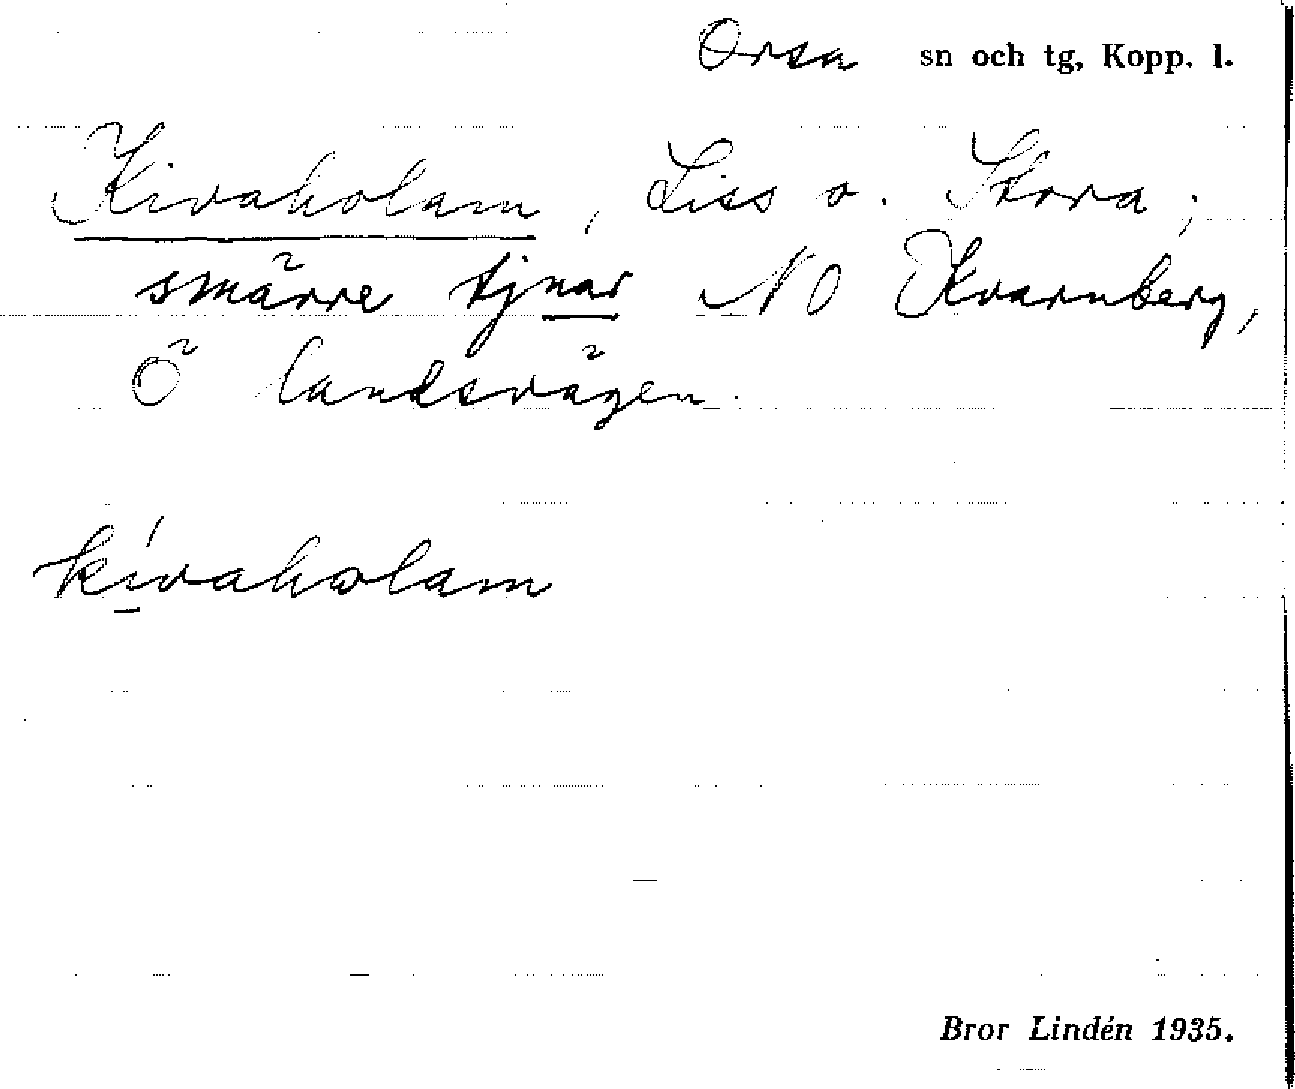 Orsa sn och tg, Kopp. l.
Kivaholam, Liss o. Stora;
smärre tjnar NO Kvarnberg,
Ö landsvägen.
kívaholam
Bror Lindén 1935.